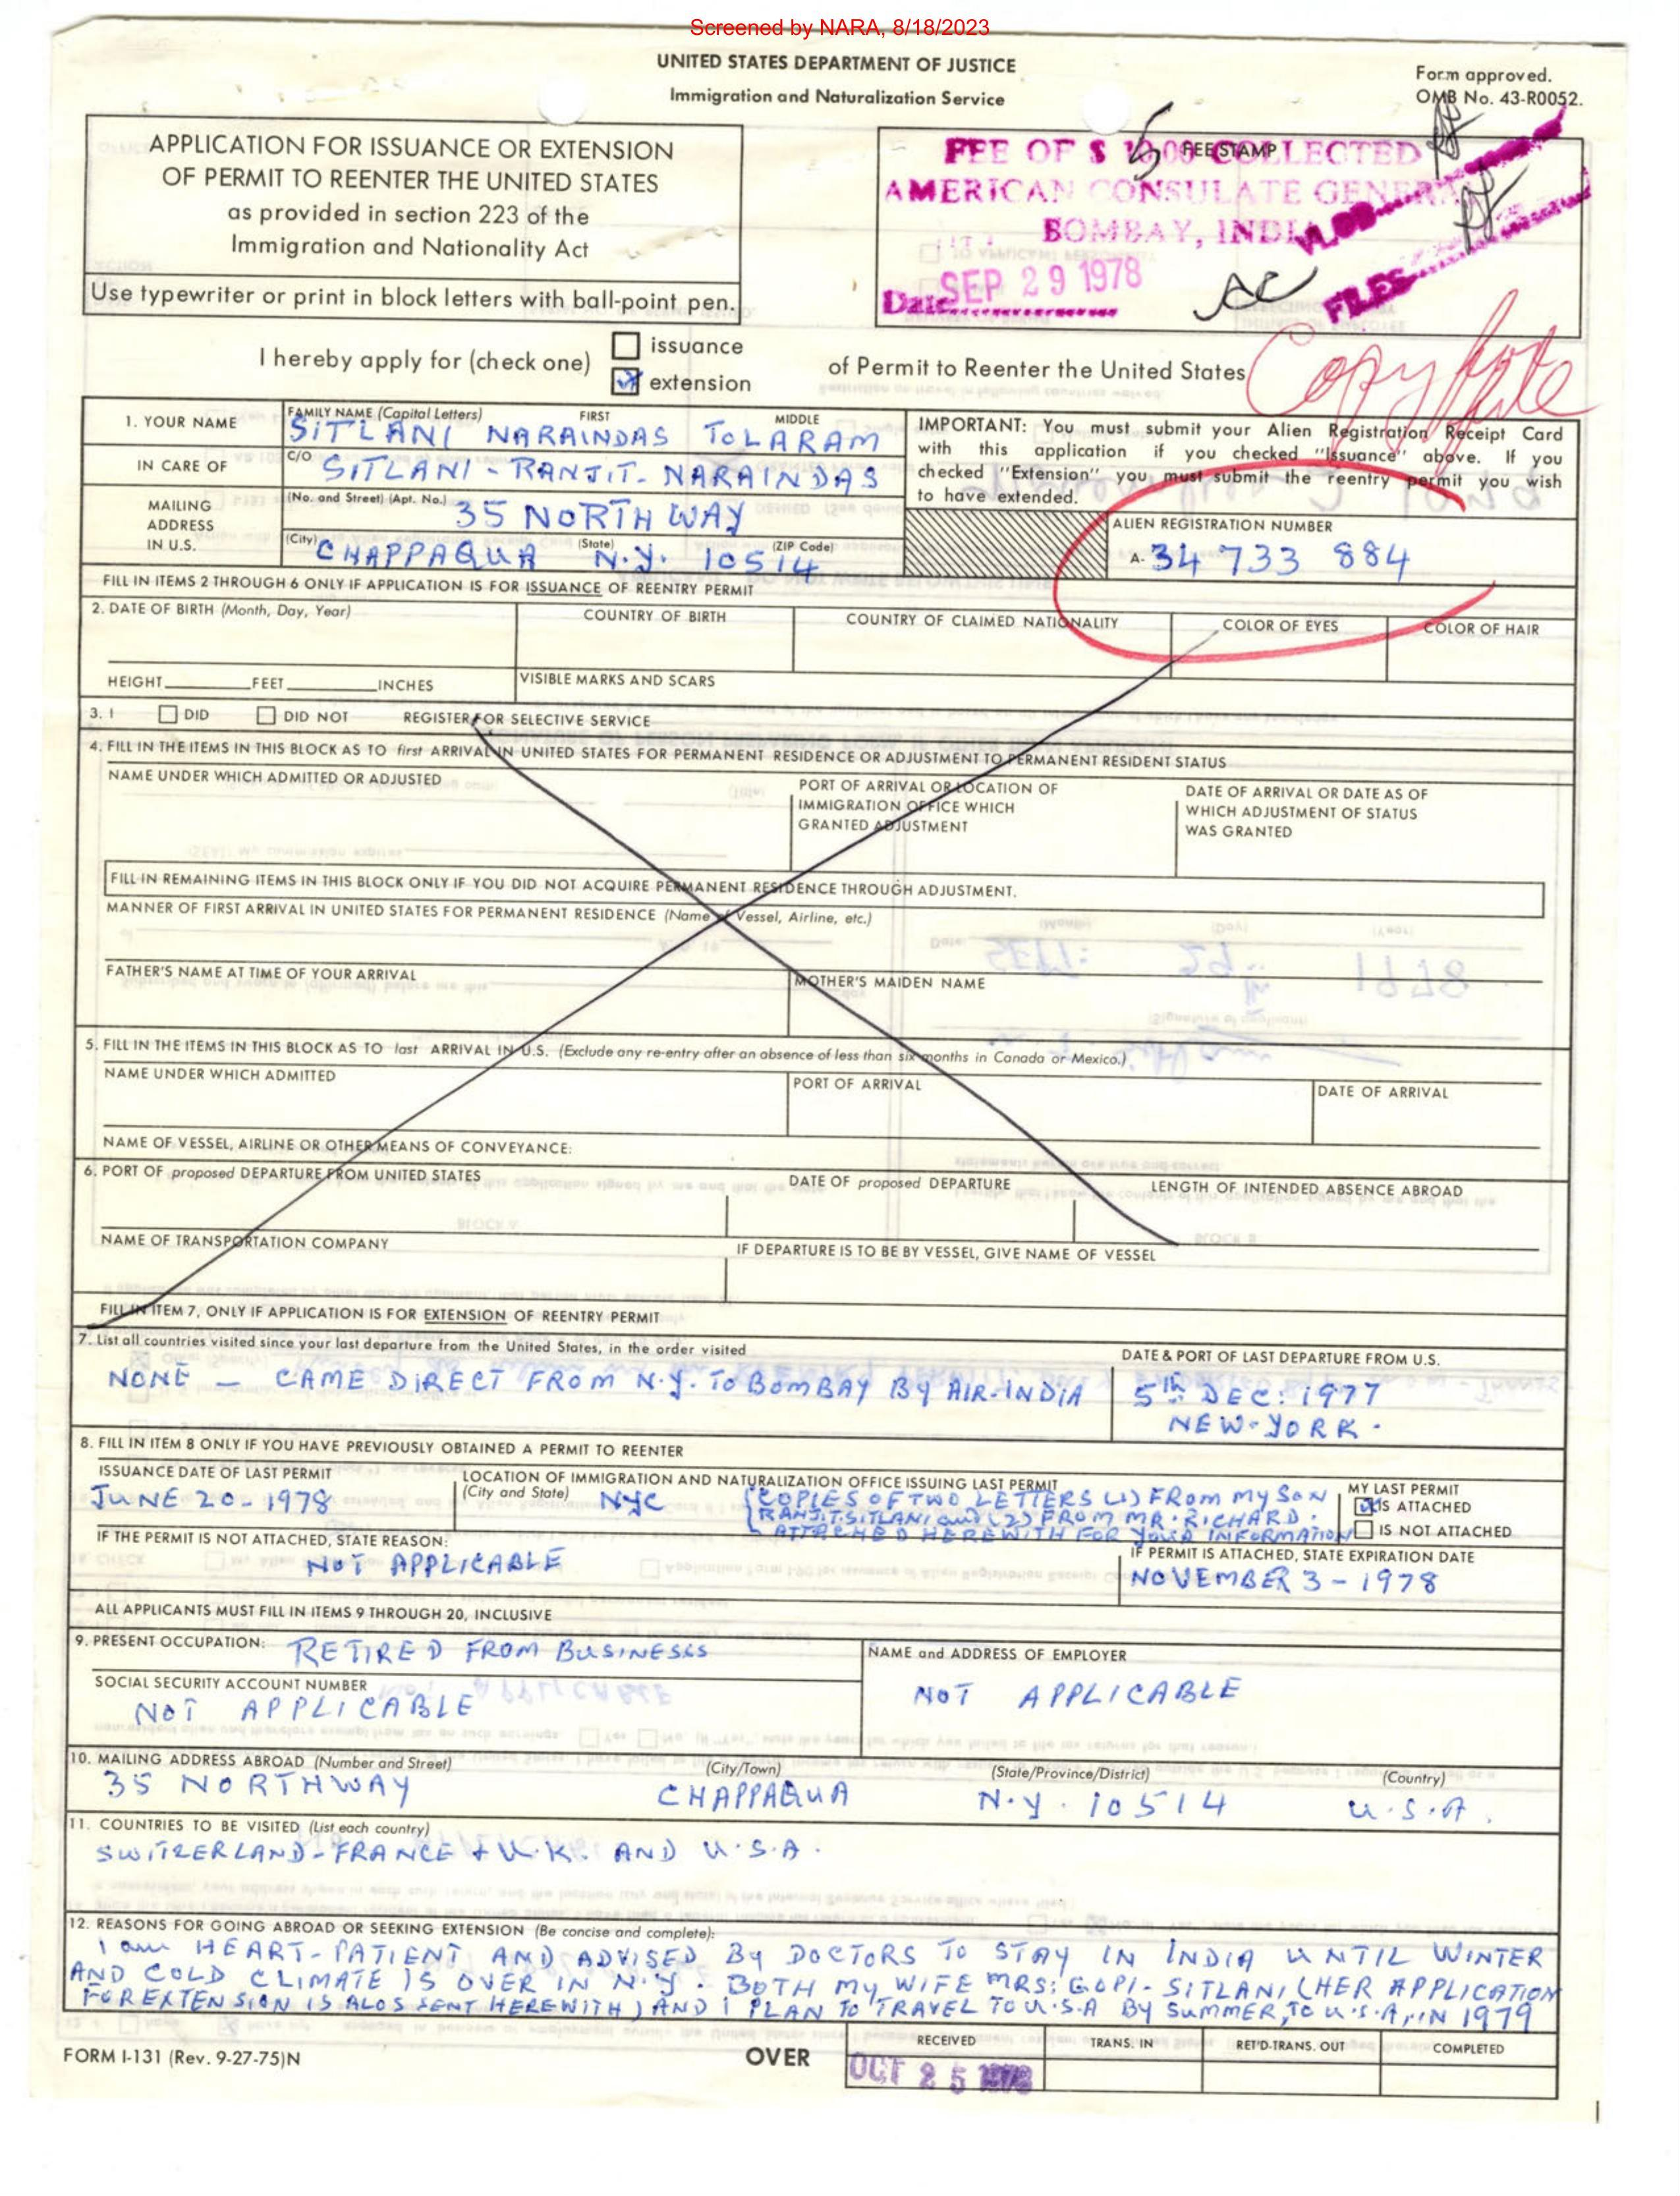 Screened by NARA, 8/18/2023
UNITED STATES DEPARTMENT OF JUSTICE
Immigration and Naturalization Service
Form approved.
OMB No. 43-R0052.
APPLICATION FOR ISSUANCE OR EXTENSION
OF PERMIT TO REENTER THE UNITED STATES
as provided in section 223 of the
Immigration and Nationality Act
Use typewriter or print in block letters with ball-point pen.
FEE STAMP
FEE OF $ 5 .00 COLLECTED
AMERICAN CONSULATE GENERAL
BOMBAY, INDIA
Date SEP 29 1978
FILES
I hereby apply for (check one)
issuance
extension
of Permit to Reenter the United States
Copy
1. YOUR NAME
FAMILY NAME (Capital Letters) FIRST MIDDLE
SITLANI NARAINDAS TOLARAM
IN CARE OF
C/O SITLANI - RANJIT. NARAINDAS
MAILING ADDRESS IN U.S.
(No. and Street) (Apt. No.) 35 NORTH WAY
(City) (State) (ZIP Code)
CHAPPAQUA N.Y. 10514
IMPORTANT: You must submit your Alien Registration Receipt Card
with this application if you checked "Issuance" above. If you
checked "Extension" you must submit the reentry permit you wish
to have extended.
ALIEN REGISTRATION NUMBER
A- 34 733 884
FILL IN ITEMS 2 THROUGH 6 ONLY IF APPLICATION IS FOR ISSUANCE OF REENTRY PERMIT
2. DATE OF BIRTH (Month, Day, Year) COUNTRY OF BIRTH COUNTRY OF CLAIMED NATIONALITY COLOR OF EYES COLOR OF HAIR
HEIGHT FEET INCHES VISIBLE MARKS AND SCARS
3. I DID DID NOT REGISTER FOR SELECTIVE SERVICE
4. FILL IN THE ITEMS IN THIS BLOCK AS TO first ARRIVAL IN UNITED STATES FOR PERMANENT RESIDENCE OR ADJUSTMENT TO PERMANENT RESIDENT STATUS
NAME UNDER WHICH ADMITTED OR ADJUSTED
PORT OF ARRIVAL OR LOCATION OF
IMMIGRATION OFFICE WHICH
GRANTED ADJUSTMENT
DATE OF ARRIVAL OR DATE AS OF
WHICH ADJUSTMENT OF STATUS
WAS GRANTED
FILL IN REMAINING ITEMS IN THIS BLOCK ONLY IF YOU DID NOT ACQUIRE PERMANENT RESIDENCE THROUGH ADJUSTMENT.
MANNER OF FIRST ARRIVAL IN UNITED STATES FOR PERMANENT RESIDENCE (Name of Vessel, Airline, etc.)
FATHER'S NAME AT TIME OF YOUR ARRIVAL MOTHER'S MAIDEN NAME
5. FILL IN THE ITEMS IN THIS BLOCK AS TO last ARRIVAL IN U.S. (Exclude any re-entry after an absence of less than six months in Canada or Mexico.)
NAME UNDER WHICH ADMITTED PORT OF ARRIVAL DATE OF ARRIVAL
NAME OF VESSEL, AIRLINE OR OTHER MEANS OF CONVEYANCE:
6. PORT OF proposed DEPARTURE FROM UNITED STATES DATE OF proposed DEPARTURE LENGTH OF INTENDED ABSENCE ABROAD
NAME OF TRANSPORTATION COMPANY IF DEPARTURE IS TO BE BY VESSEL, GIVE NAME OF VESSEL
FILL IN ITEM 7, ONLY IF APPLICATION IS FOR EXTENSION OF REENTRY PERMIT
7. List all countries visited since your last departure from the United States, in the order visited DATE & PORT OF LAST DEPARTURE FROM U.S.
NONE — CAME DIRECT FROM N.Y. TO BOMBAY BY AIR-INDIA 5th DEC: 1977
NEW-YORK.
8. FILL IN ITEM 8 ONLY IF YOU HAVE PREVIOUSLY OBTAINED A PERMIT TO REENTER
ISSUANCE DATE OF LAST PERMIT
JUNE 20-1978
LOCATION OF IMMIGRATION AND NATURALIZATION OFFICE ISSUING LAST PERMIT
(City and State) NYC
(COPIES OF TWO LETTERS (1) FROM MY SON
RANJIT.SITLANI and (2) FROM MR. RICHARD.
ATTACHED HEREWITH FOR YOUR INFORMATION
MY LAST PERMIT
IS ATTACHED
IS NOT ATTACHED
IF THE PERMIT IS NOT ATTACHED, STATE REASON:
NOT APPLICABLE
IF PERMIT IS ATTACHED, STATE EXPIRATION DATE
NOVEMBER 3-1978
ALL APPLICANTS MUST FILL IN ITEMS 9 THROUGH 20, INCLUSIVE
9. PRESENT OCCUPATION: RETIRED FROM BUSINESS
NAME and ADDRESS OF EMPLOYER
NOT APPLICABLE
SOCIAL SECURITY ACCOUNT NUMBER
NOT APPLICABLE
10. MAILING ADDRESS ABROAD (Number and Street) (City/Town) (State/Province/District) (Country)
35 NORTHWAY CHAPPAQUA N.Y. 10514 U.S.A.
11. COUNTRIES TO BE VISITED (List each country)
SWITZERLAND-FRANCE + U.K. AND U.S.A.
12. REASONS FOR GOING ABROAD OR SEEKING EXTENSION (Be concise and complete):
I am HEART-PATIENT AND ADVISED BY DOCTORS TO STAY IN INDIA UNTIL WINTER
AND COLD CLIMATE IS OVER IN N.Y. BOTH MY WIFE MRS: GOPI-SITLANI (HER APPLICATION
FOR EXTENSION IS ALOS SENT HEREWITH) AND I PLAN TO TRAVEL TO U.S.A BY SUMMER, TO U.S.A, IN 1979
FORM I-131 (Rev. 9-27-75)N
OVER
RECEIVED TRANS. IN RET'D-TRANS. OUT COMPLETED
OCT 25 1978